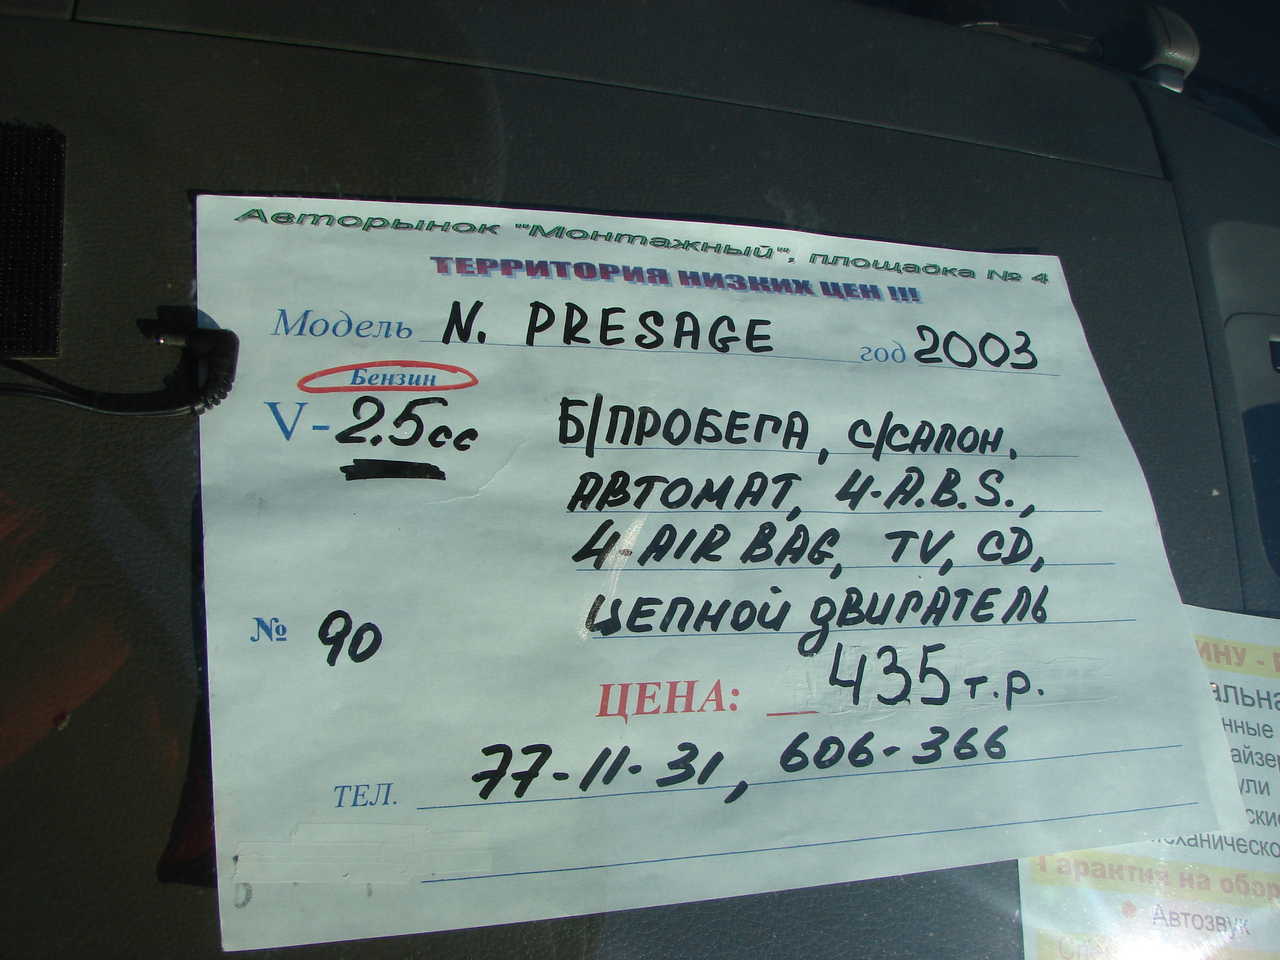 Авторынок "Монтажный", площадка № 4
ТЕРРИТОРИЯ НИЗКИХ ЦЕН !!!
Модель N. PRESAGE год 2003
Бензин
V- 2.5 cc Б/ПРОБЕГА, С/САЛОН,
АВТОМАТ, 4-A.B.S.,
4-AIR BAG, TV, CD,
ЦЕПНОЙ ДВИГАТЕЛЬ
№ 90
ЦЕНА: 435 т.р.
ТЕЛ. 77-11-31, 606-366
Гарантия на
Автозвук